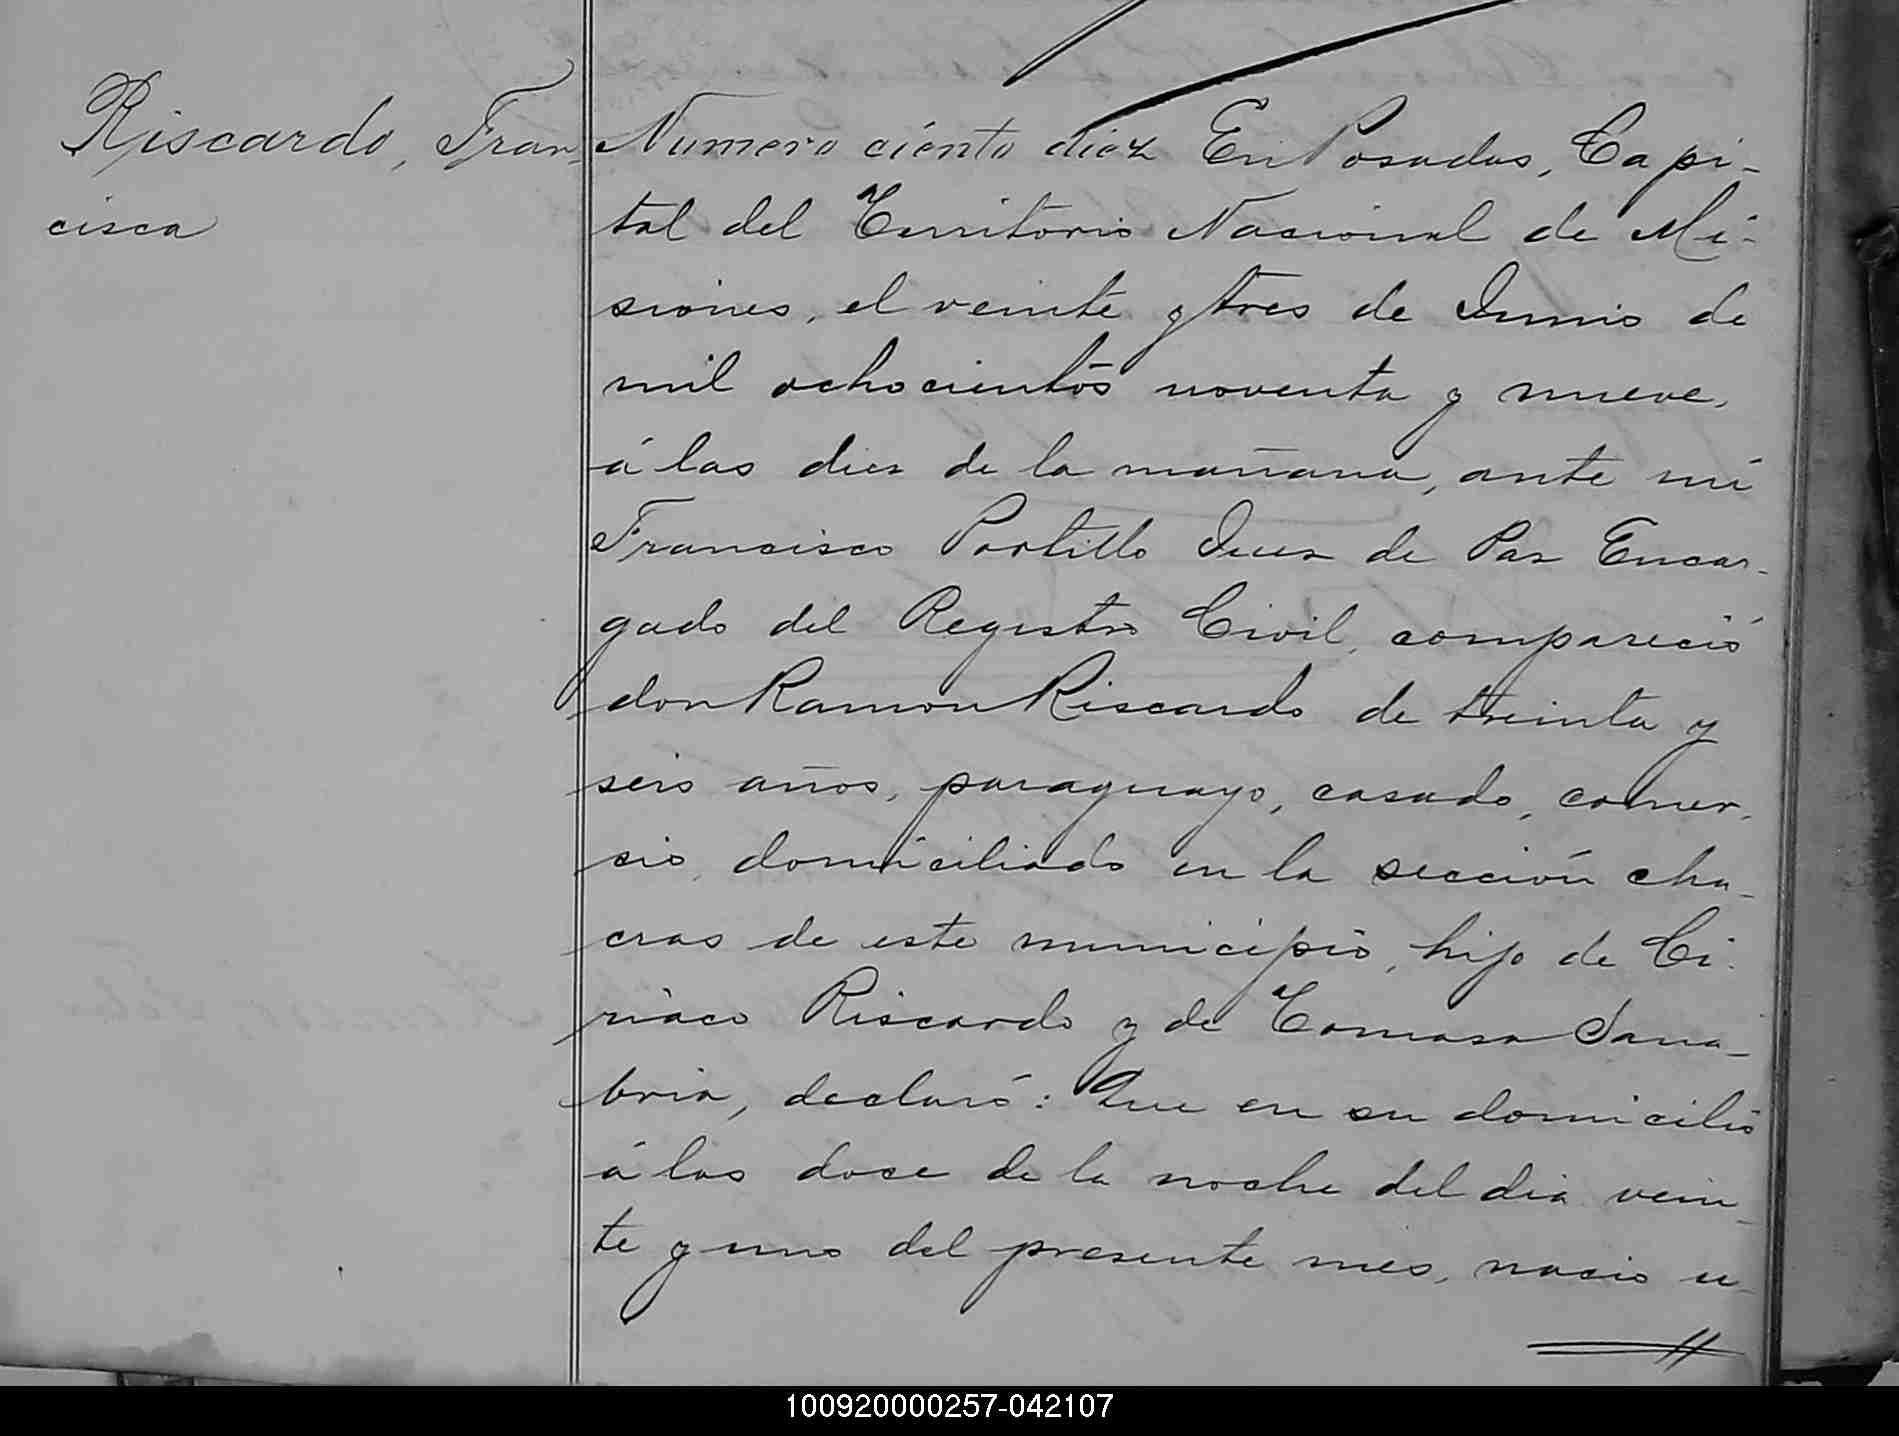 Riscardo, Fran-
cisca
Numero ciento diez En Posadas, Capi-
tal del Territorio Nacional de Mi-
siones, el veinte y tres de Junio de
mil ochocientos noventa y nueve,
á las diez de la mañana, ante mi
Francisco Portillo Juez de Paz Encar-
gado del Registro Civil, compareció
don Ramon Riscardo de treinta y
seis años, paraguayo, casado, comer-
cio, domiciliado en la sección cha-
cras de este municipio, hijo de Ci-
riaco Riscardo y de Tomasa Sana-
bria, declaró: Que en su domicilio
á las doce de la noche del dia vein-
te y uno del presente mes, nacio u-
100920000257-042107